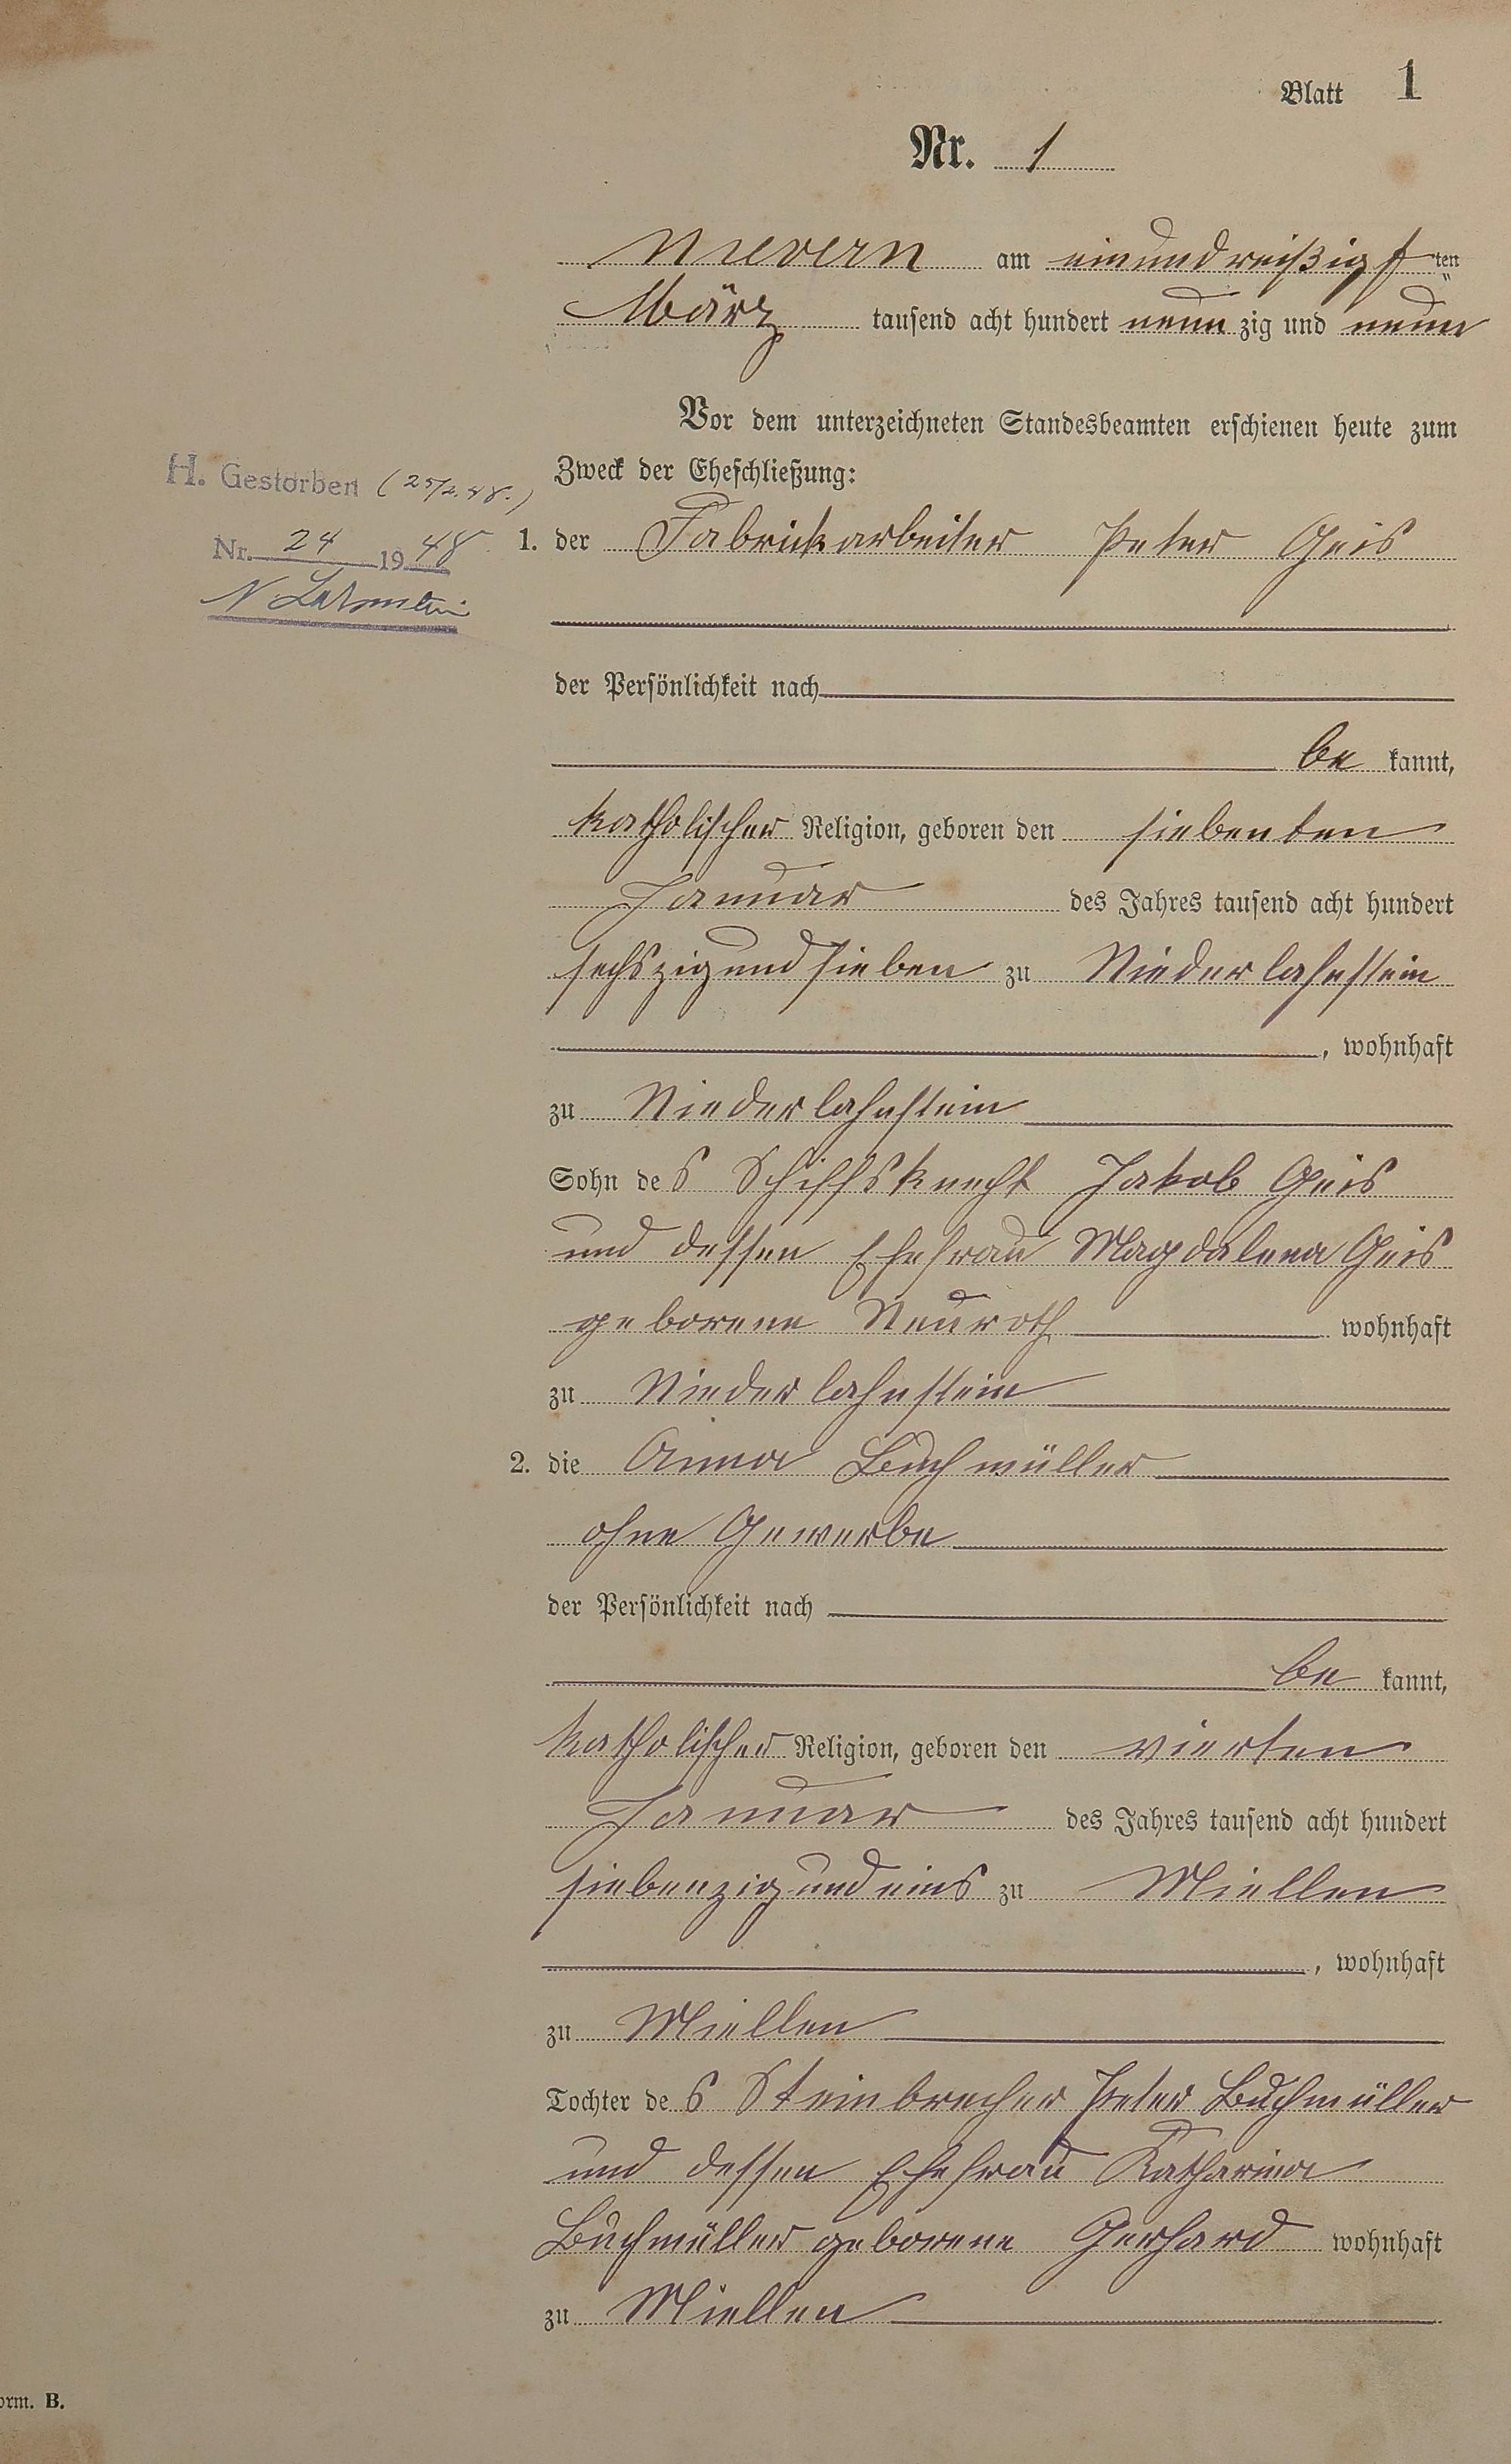 Blatt 1
Nr. 1
Nievern am einunddreißigsten
März tausend acht hundert neunzig und neun
Vor dem unterzeichneten Standesbeamten erschienen heute zum
Zweck der Eheschließung:
H. Gestorben (25/2.48.)
Nr. 24 1948
N Lahnstein
1. der Fabrickarbeiter Peter Geis
der Persönlichkeit nach
be kannt,
katholischer Religion, geboren den siebenten
Januar des Jahres tausend acht hundert
sechszigundsieben zu Niederlahnstein
, wohnhaft
zu Niederlahnstein
Sohn des Schiffsknecht Jakob Geis
und dessen Ehefrau Magdalena Geis
geborene Neuroth wohnhaft
zu Niederlahnstein
2. die Anna Buchmüller
ohne Gewerbe
der Persönlichkeit nach
be kannt,
katholischer Religion, geboren den vierten
Januar des Jahres tausend acht hundert
siebenzigundeins zu Miellen
, wohnhaft
zu Miellen
Tochter des Steinbrecher Peter Buchmüller
und dessen Ehefrau Katharina
Buchmüller geborene Gerhard wohnhaft
zu Miellen
orm. B.